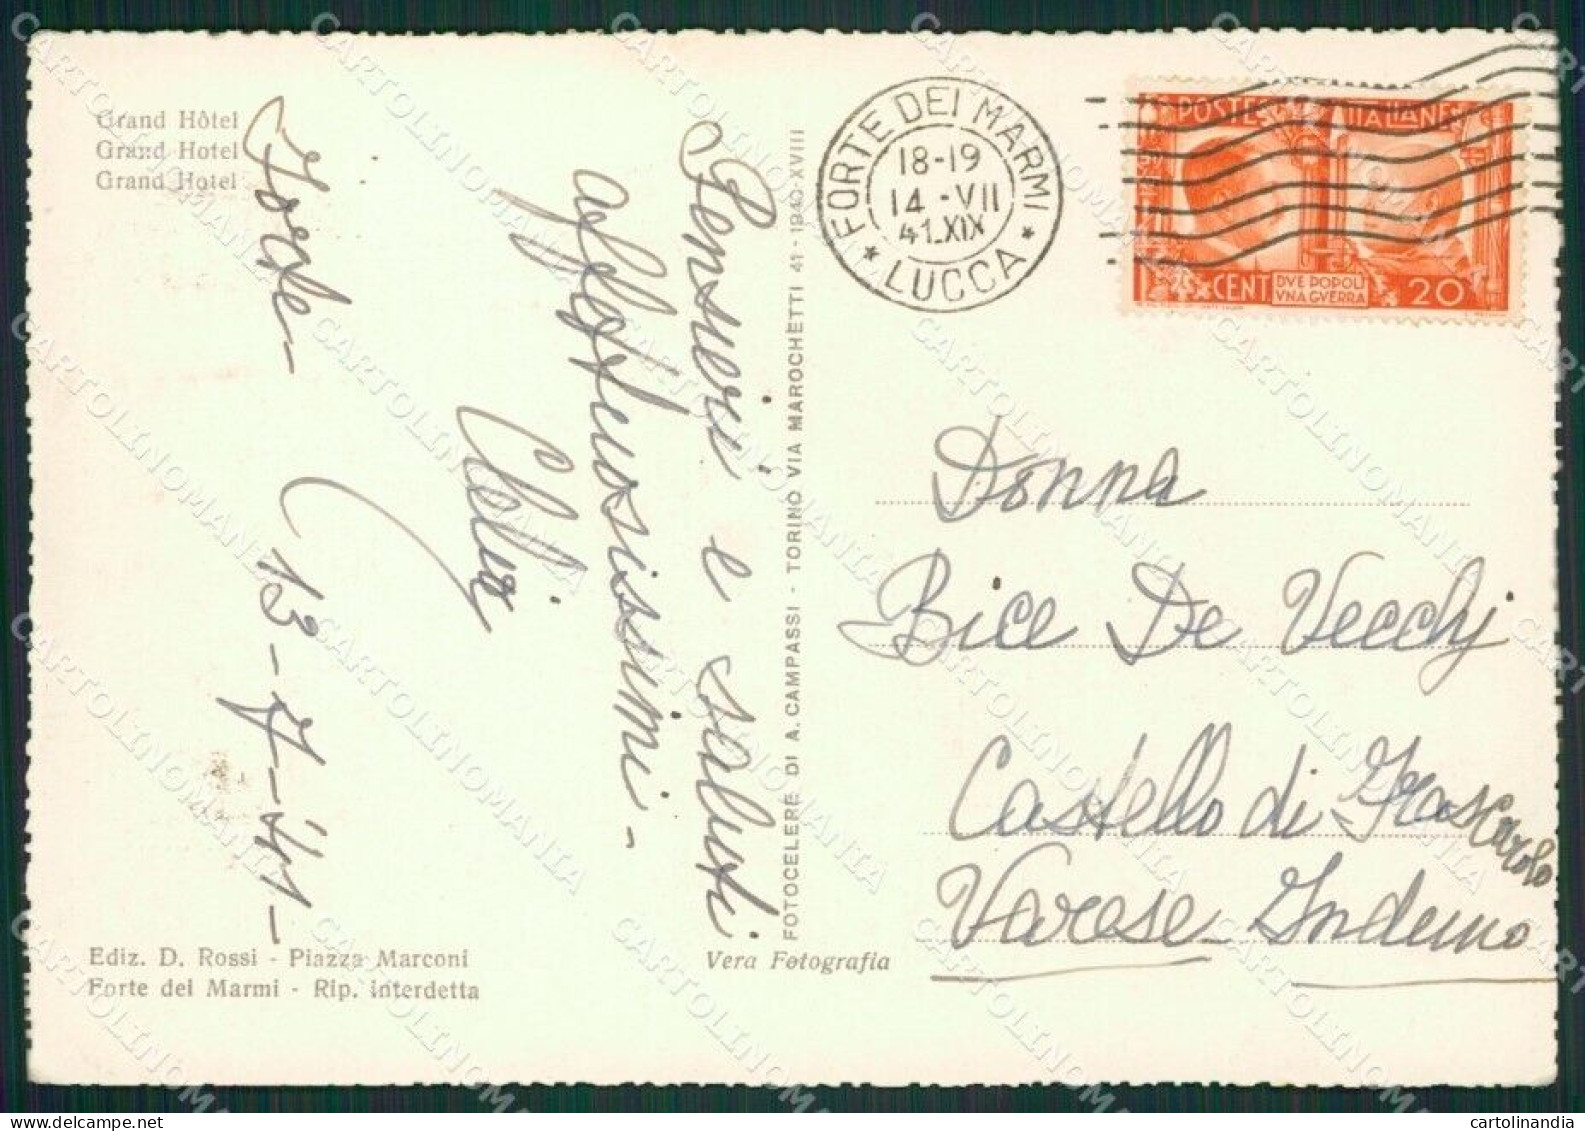 Grand Hôtel
Grand Hotel
Grand Hotel
Forte - 13-7-41-
Pensieri e saluti
affettuosissimi -
Clelia
Ediz. D. Rossi - Piazza Marconi
Forte dei Marmi - Rip. interdetta
Vera Fotografia
FOTOCELERE DI A. CAMPASSI - TORINO VIA MAROCHETTI 41 - 1940-XVIII
FORTE DEI MARMI
18-19
14-VII
41.XIX
* LUCCA *
POSTE ITALIANE
CENT 20
DVE POPOLI
VNA GVERRA
Donna
Bice De Vecchj
Castello di Frascarolo
Varese - Induno
CARTOLINOMANIA
cartolinandia